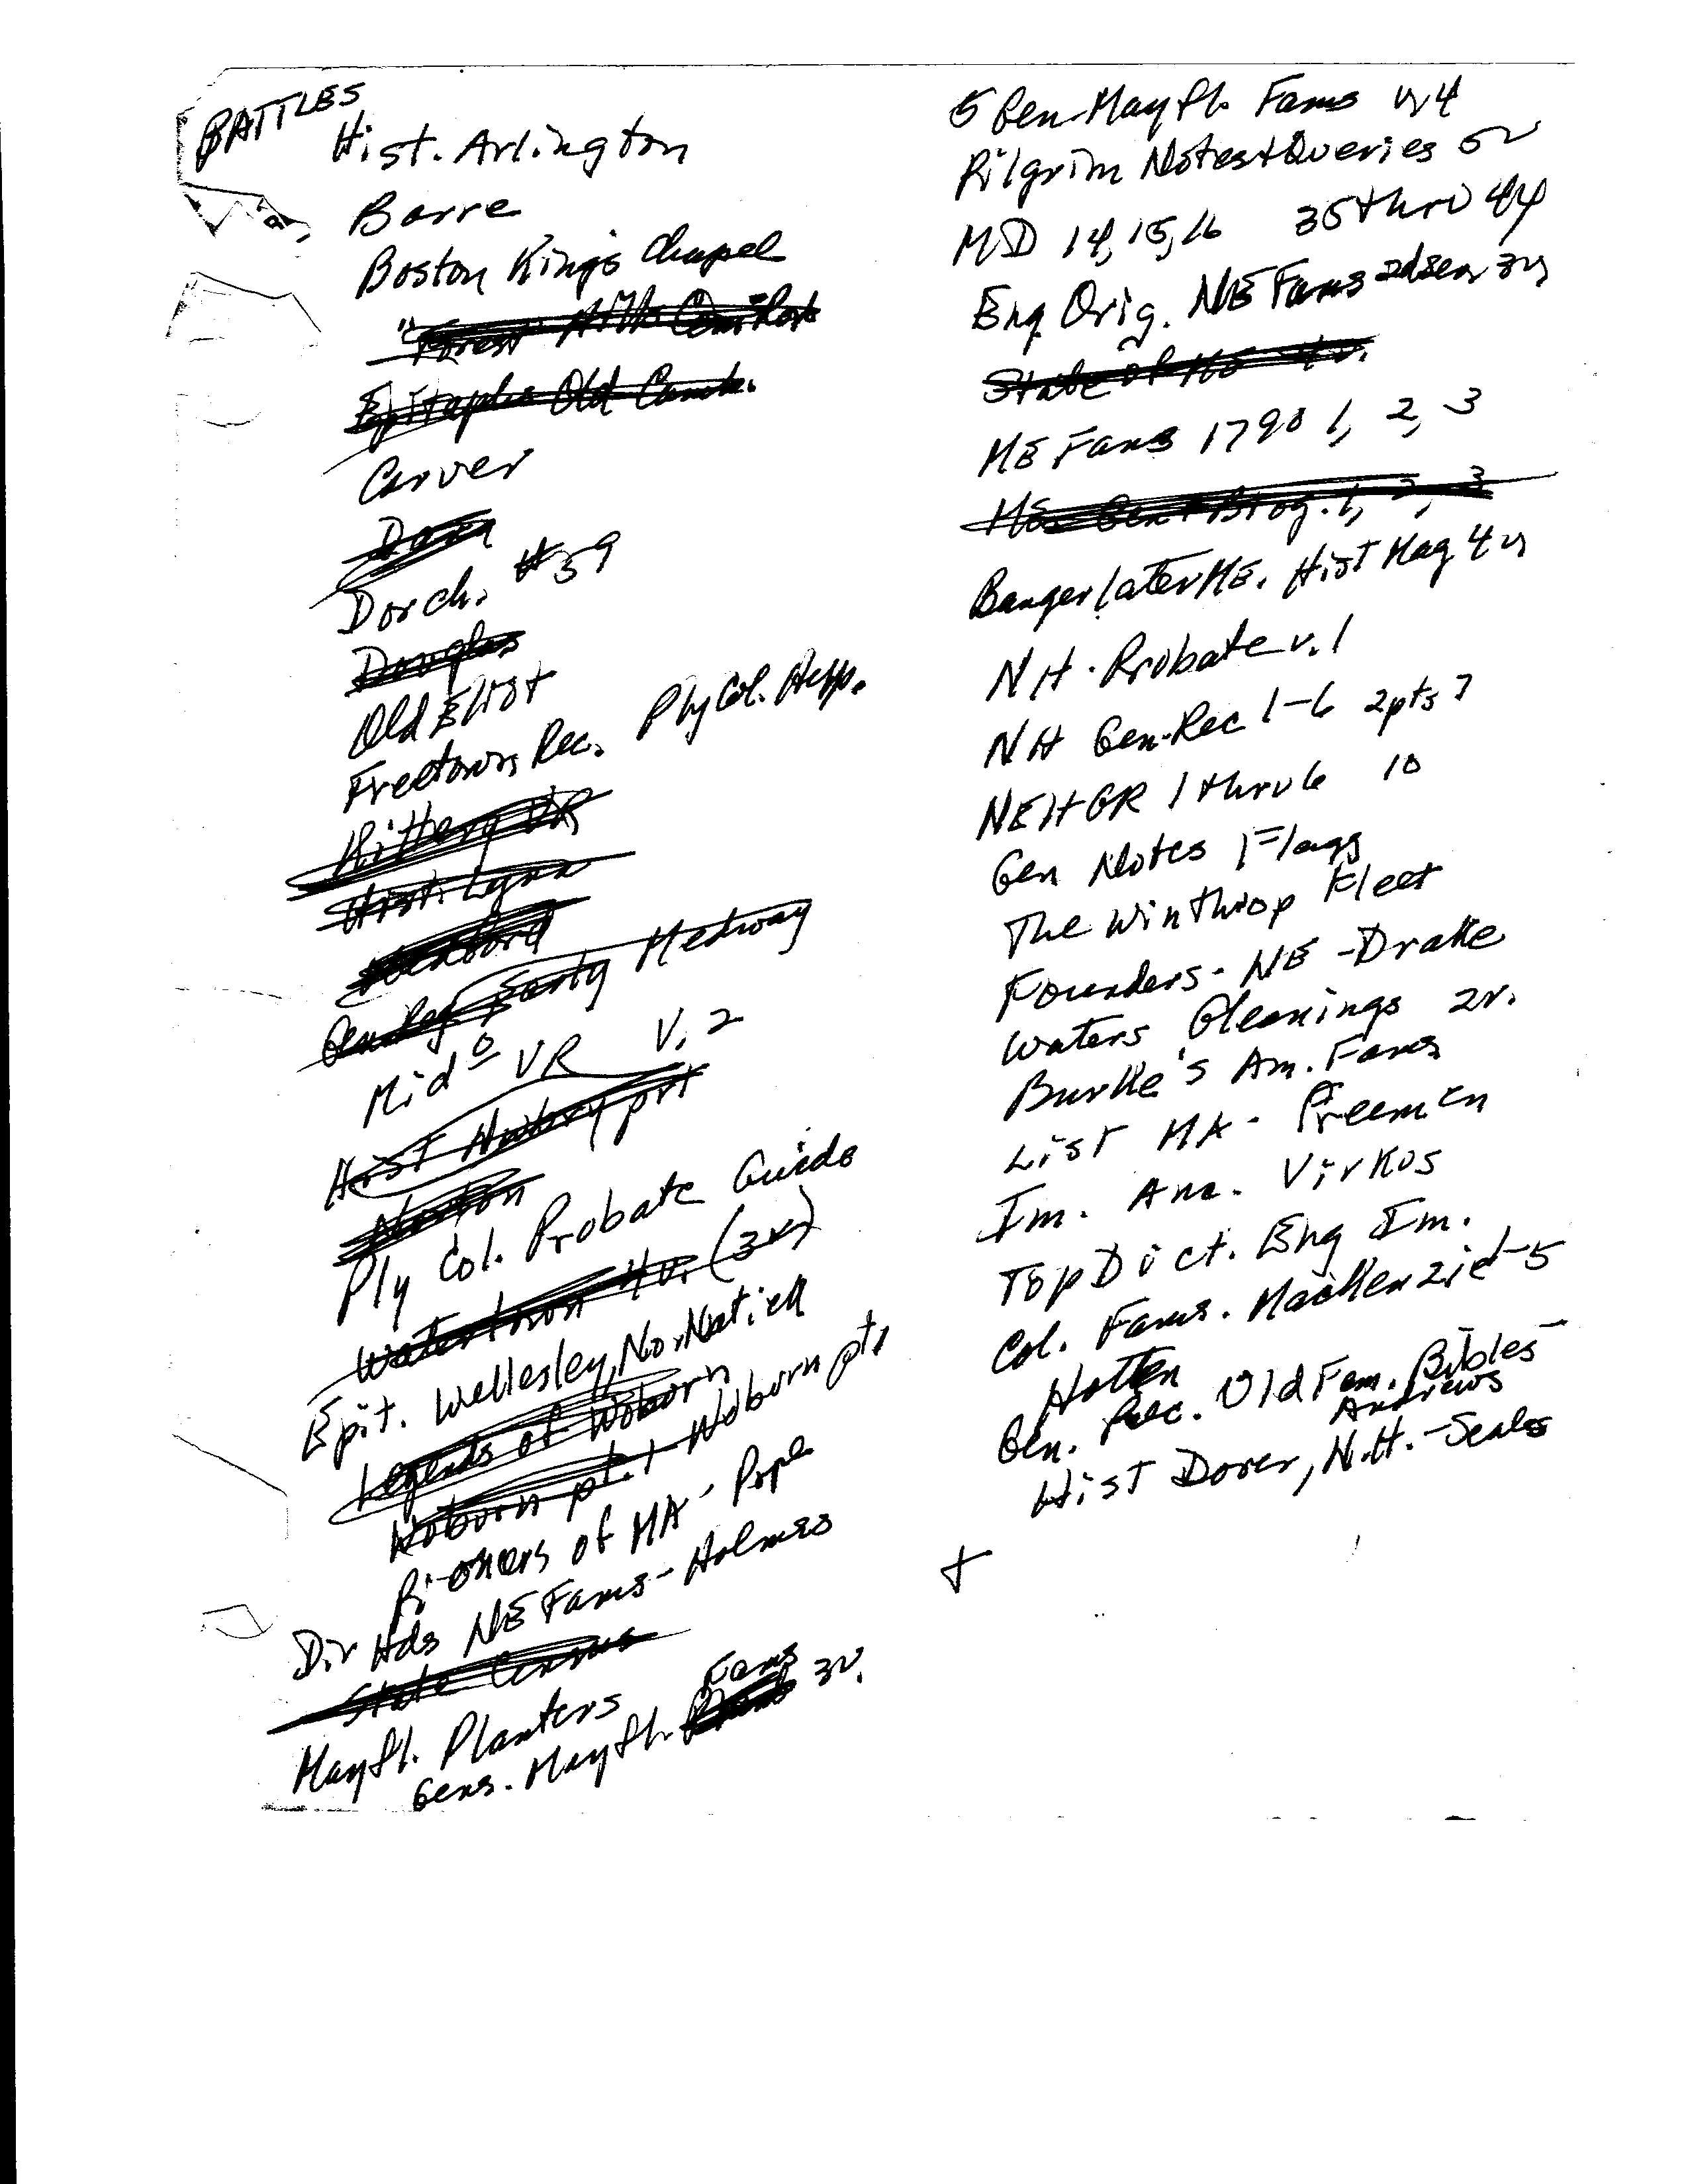 BATTLES
Hist. Arlington
Barre
Boston Kings Chapel
" Forest Hills
Epitaphs Old Camb.
Carver
Dorch. #59
Douglas
Old Eliot
Freetown Rec. Ply Col. Hesp.
VR
Hist. Lynn
Early Medway
Mid⁰ VR V. 2
Hist Nubryport
Norton
Ply Col. Probate Guide
Watertown 4v. (3v)
Epit. Wellesley, No. Natick
Legends of Woburn
Woburn pt. 1 Woburn pt 1
Pi-oners of MA - Pope
Dir Hds NE Fams - Holmes
State Census
Mayfl. Planters
Gens. Mayfl. Fams 3v.
5 Gen Mayfl. Fams v 4
Pilgrim Notes + Queries 5v
MD 14, 15, 16 35 thru 44
Eng Orig. NE Fams 2d ser 3v
State of ME 4v.
ME Fams 1790 1, 2, 3
Gen + Biog. 1, 2, 3
Bangor later ME. Hist Mag 4v
NH. Probate v. 1
NH Gen. Rec 1-6 2pts 7
NEHGR 1 thru 6 10
Gen Notes Flagg
The Winthrop Fleet
Founders - NE - Drake
Waters Gleanings 2v.
Burke's Am. Fams
List MA - Freemen
Im. Anc. Virkus
Top Dict. Eng Em.
Col. Fams. MacKenzie - 5
Hotten
Gen. Rec. Old Fam. Bibles
Andrews
Hist Dover, N.H. - Scales